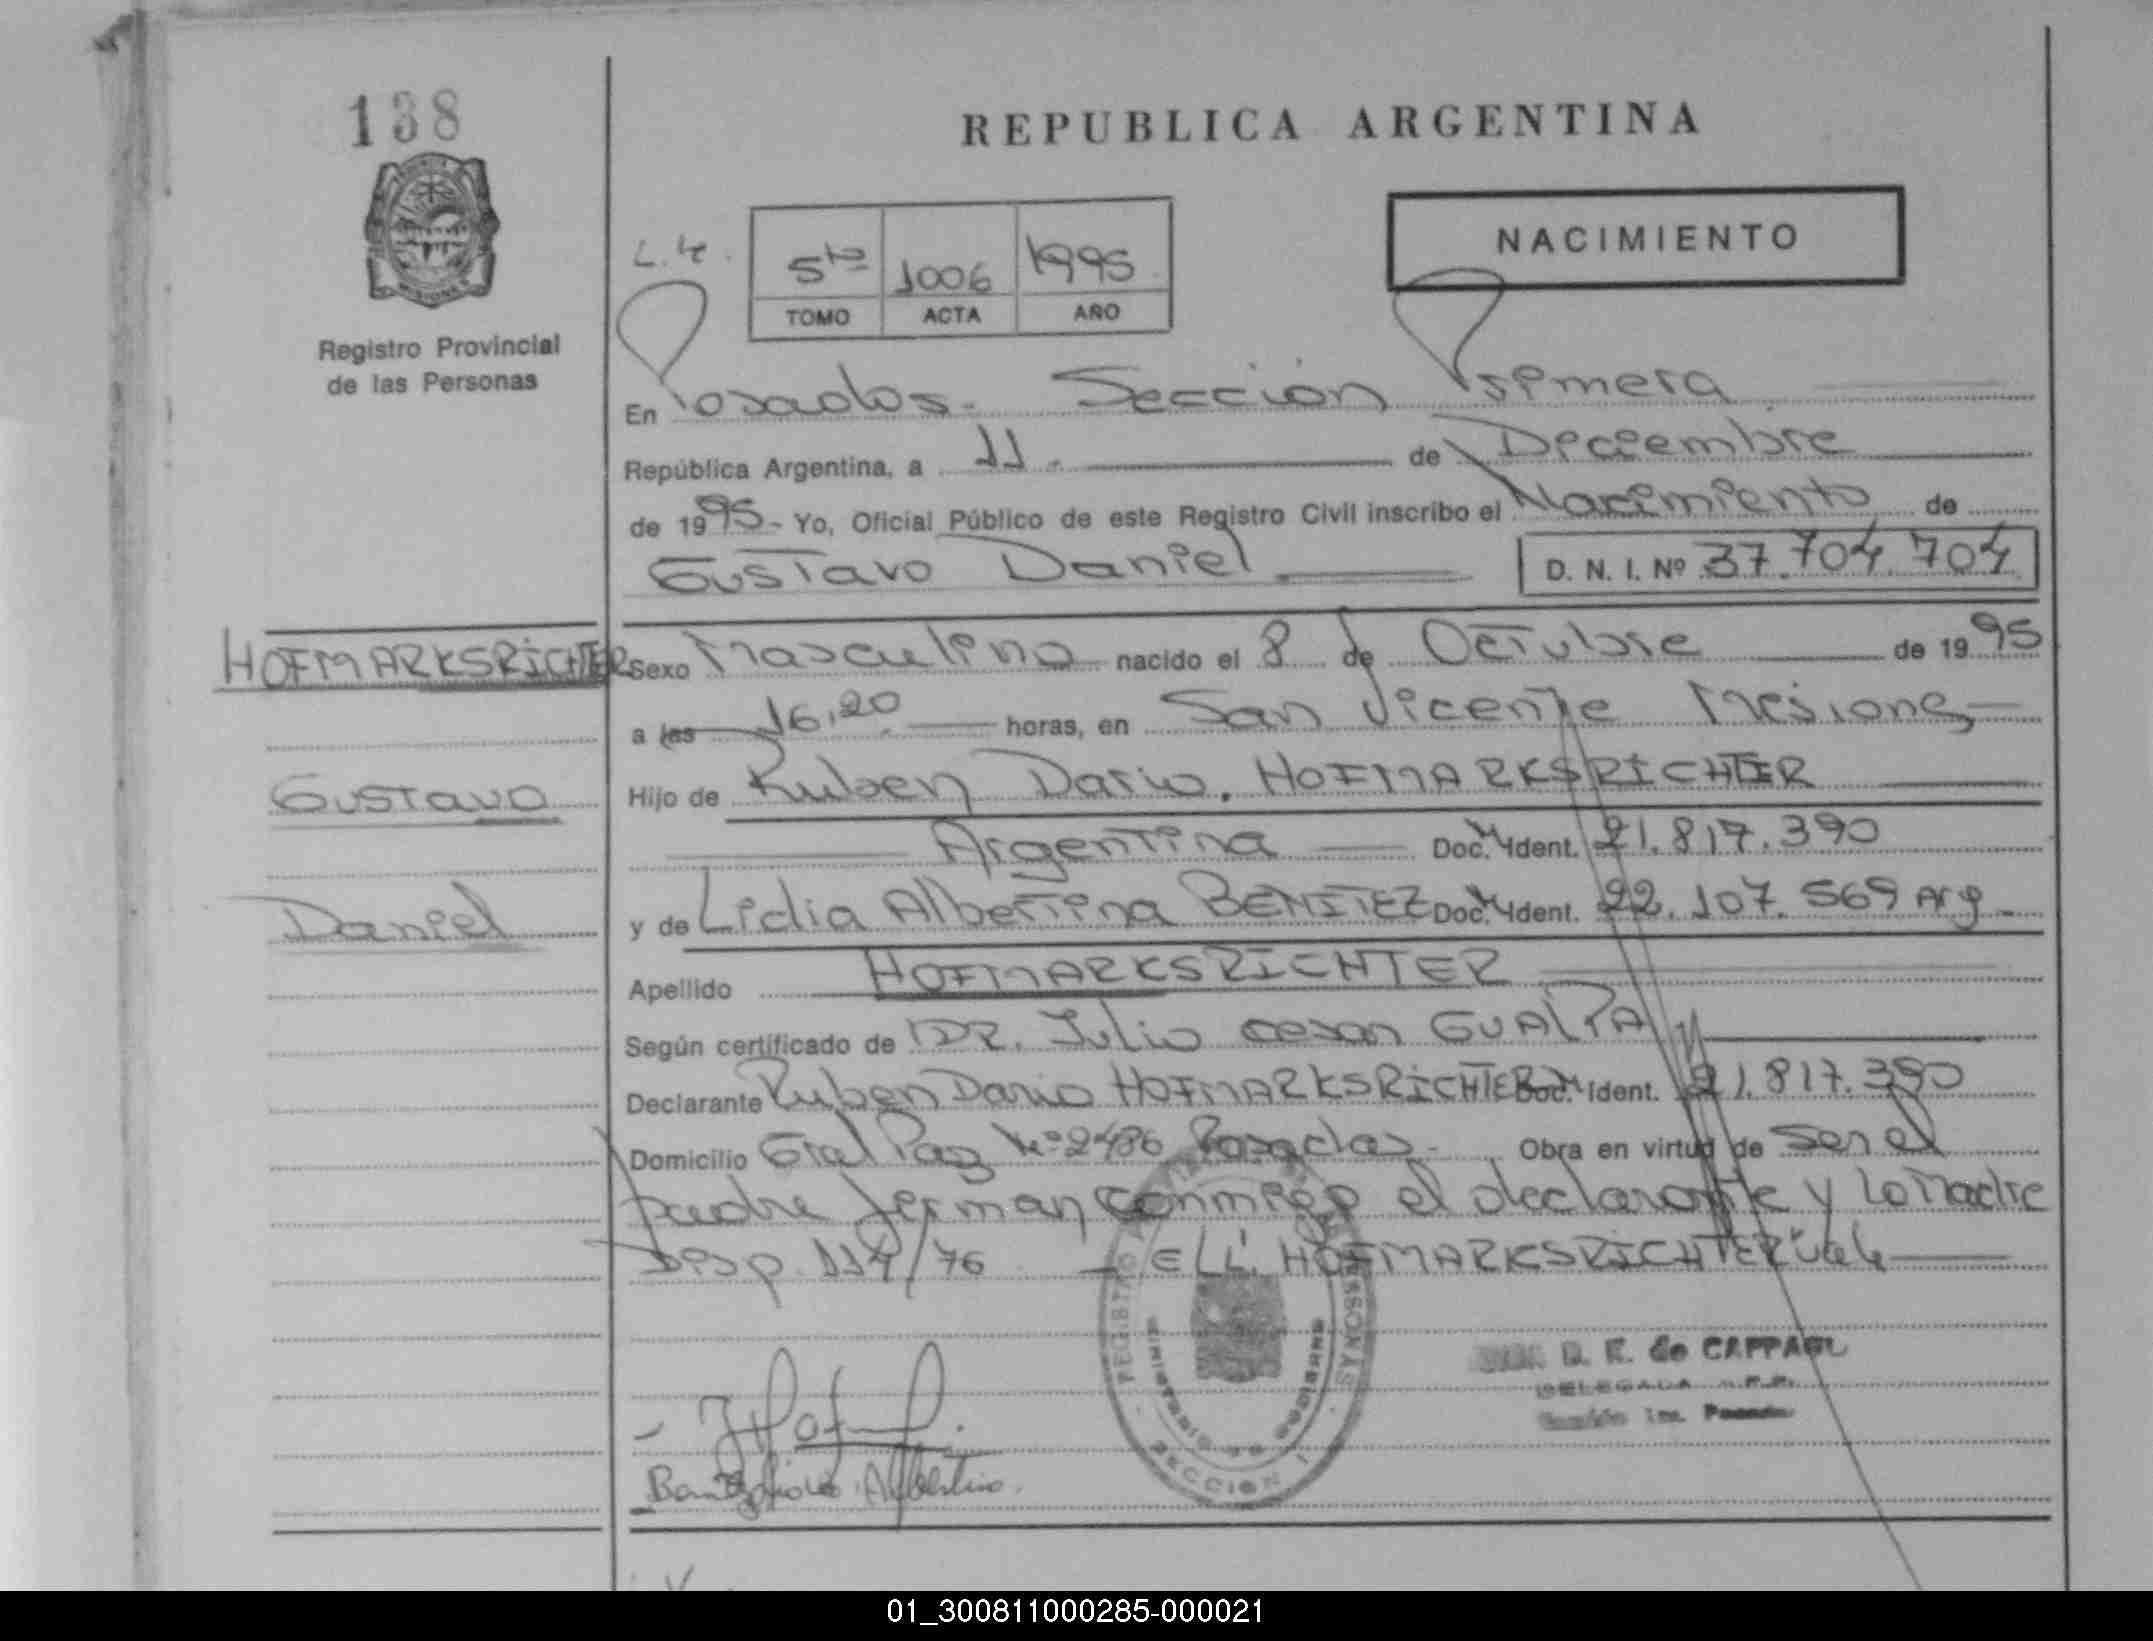 138
REPUBLICA ARGENTINA
MISIONES
Registro Provincial
de las Personas
L. 4.
5to 1006 1995
TOMO ACTA AÑO
NACIMIENTO
En Posadas. Sección Primera
República Argentina, a 11. de Diciembre
de 1995- Yo, Oficial Público de este Registro Civil inscribo el Nacimiento de
Gustavo Daniel D. N. I. Nº 37.704.704
HOFMARKSRICHTER
Gustavo
Daniel
Sexo Masculino nacido el 8 de Octubre de 1995
a las 16,20 horas, en San Vicente Misiones
Hijo de Ruben Dario. HOFMARKSRICHTER
Argentina Doc. Ident. 21.817.390
y de Lidia Albertina BENITEZ Doc. Ident. 22.107.569 Arg.
Apellido HOFMARKSRICHTER
Según certificado de DR. Julio cesar GUALPA
Declarante Ruben Dario HOFMARKSRICHTER Doc. Ident. 21.817.390
Domicilio Gral Paz Nº 2486 Posadas. Obra en virtud de ser el
padre firman conmigo el declarante y la Madre
Disp. 114/76 E/L. HOFMARKSRICHTER Vale
REGISTRO PERSONAS
MINISTERIO DE GOBIERNO
SECCION 1
D. R. de CAPPAGLI
DELEGADA R.P.P.
Sección 1ra. Posadas
Hof
Benitez Lidia Albertina.
01_300811000285-000021